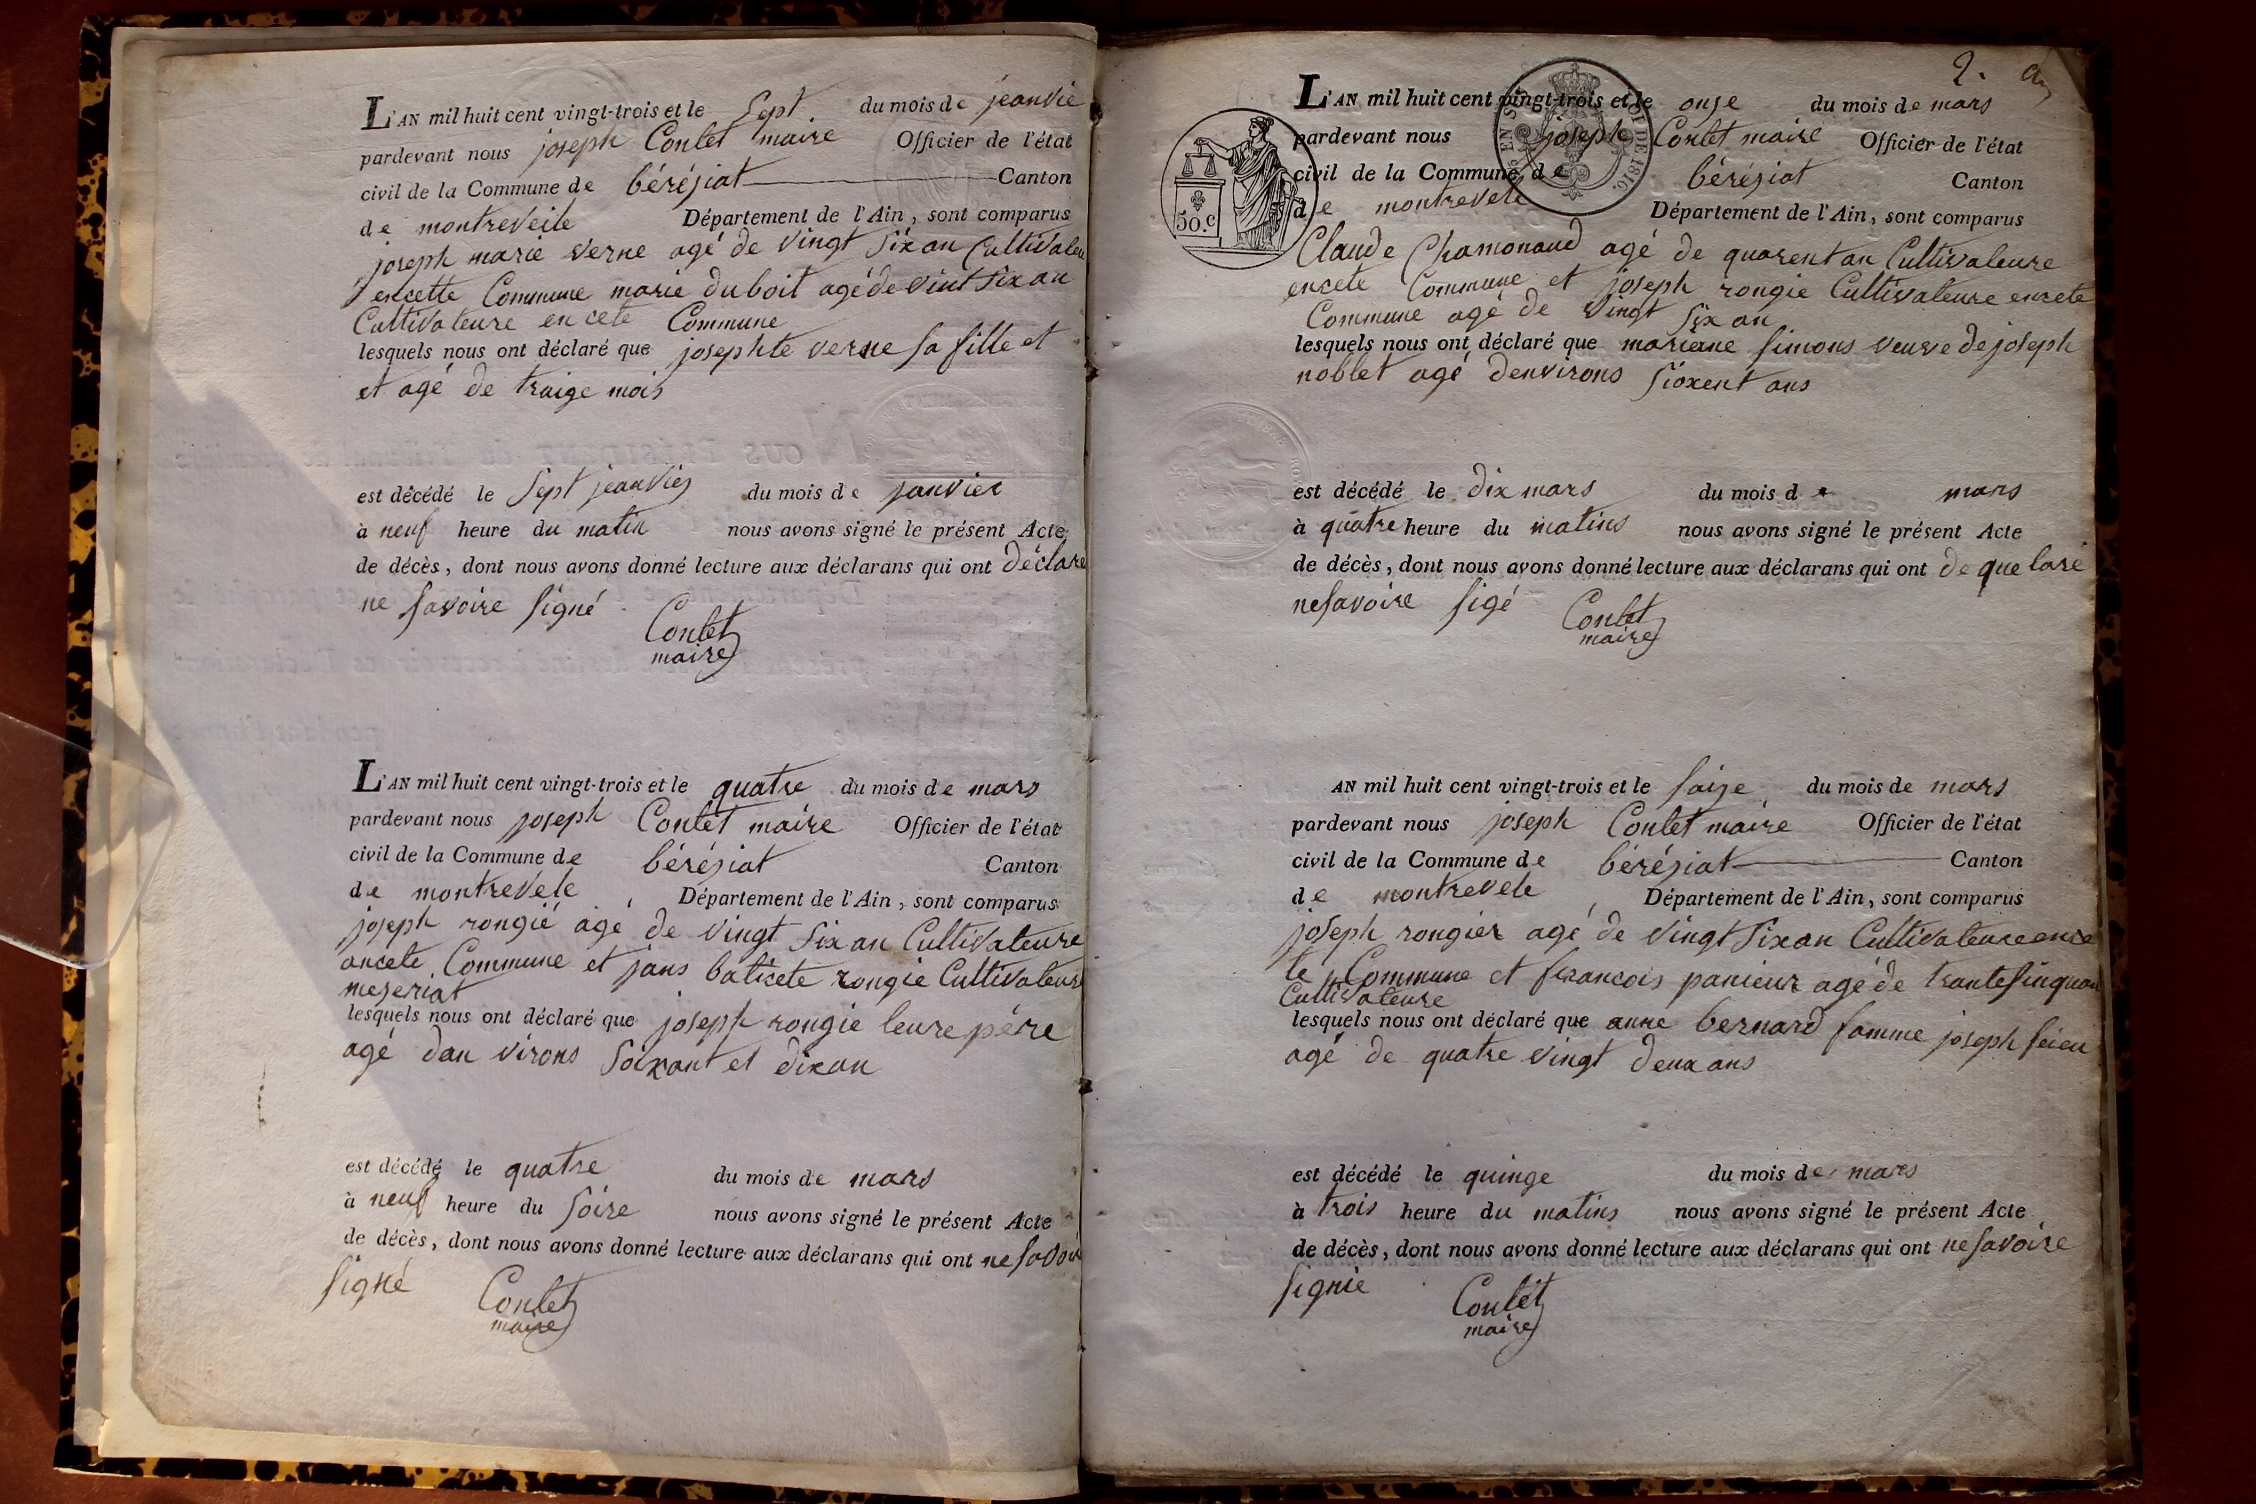 L'AN mil huit cent vingt-trois et le Sept du mois de jeanvie
pardevant nous joseph Conlet maire Officier de l'état
civil de la Commune de béréziat Canton
de montreveile Département de l'Ain, sont comparus
joseph marie verne agé de vingt six an Cultivateu
encette Commune marie duboit agé de vint six an
Cultivateure en cete Commune
lesquels nous ont déclaré que josephte verne sa fille et
et agé de traize mois
est décédé le Sept jeanvier du mois de janvier
à neuf heure du matin nous avons signé le présent Acte
de décès, dont nous avons donné lecture aux déclarans qui ont déclare
ne savoire signé
Conlet
maire
L'AN mil huit cent vingt-trois et le quatre du mois de mars
pardevant nous joseph Conlet maire Officier de l'état
civil de la Commune de béréziat Canton
de montrevele Département de l'Ain, sont comparus
joseph rongié agé de vingt six an Cultivateure
ancete Commune et jans baticete rongie Cultivateur
mezeriat
lesquels nous ont déclaré que joseph rongie leure pére
agé dan virons soixant et dixan
est décédé le quatre du mois de mars
à neuf heure du soire nous avons signé le présent Acte
de décès, dont nous avons donné lecture aux déclarans qui ont ne savoir
signé
Conlet
maire
2.
L'AN mil huit cent vingt-trois et le onze du mois de mars
pardevant nous joseph Conlet maire Officier de l'état
civil de la Commune de béréziat Canton
de montrevele Département de l'Ain, sont comparus
50.c
DE 1816.
Claude Chamonaud agé de quarent an Cultivateure
encete Commune et joseph rongie Cultivateure encete
Commune agé de vingt six an
lesquels nous ont déclaré que mariane simons veuve de joseph
noblet agé denvirons sioxent ans
est décédé le dix mars du mois de mars
à quatre heure du matins nous avons signé le présent Acte
de décès, dont nous avons donné lecture aux déclarans qui ont de que laré
nesavoire sigé
Conlet
maire
AN mil huit cent vingt-trois et le saize du mois de mars
pardevant nous joseph Conlet maire Officier de l'état
civil de la Commune de béréziat Canton
de montrevele Département de l'Ain, sont comparus
joseph rongier agé de vingt sixan Cultivateure ence
te Commune et francois panieur agé de trantesinquan
Cultivateure
lesquels nous ont déclaré que anne bernard famme joseph feieu
agé de quatre vingt deux ans
est décédé le quinze du mois de mars
à trois heure du matins nous avons signé le présent Acte
de décès, dont nous avons donné lecture aux déclarans qui ont nesavoire
signie
Conlet
maire